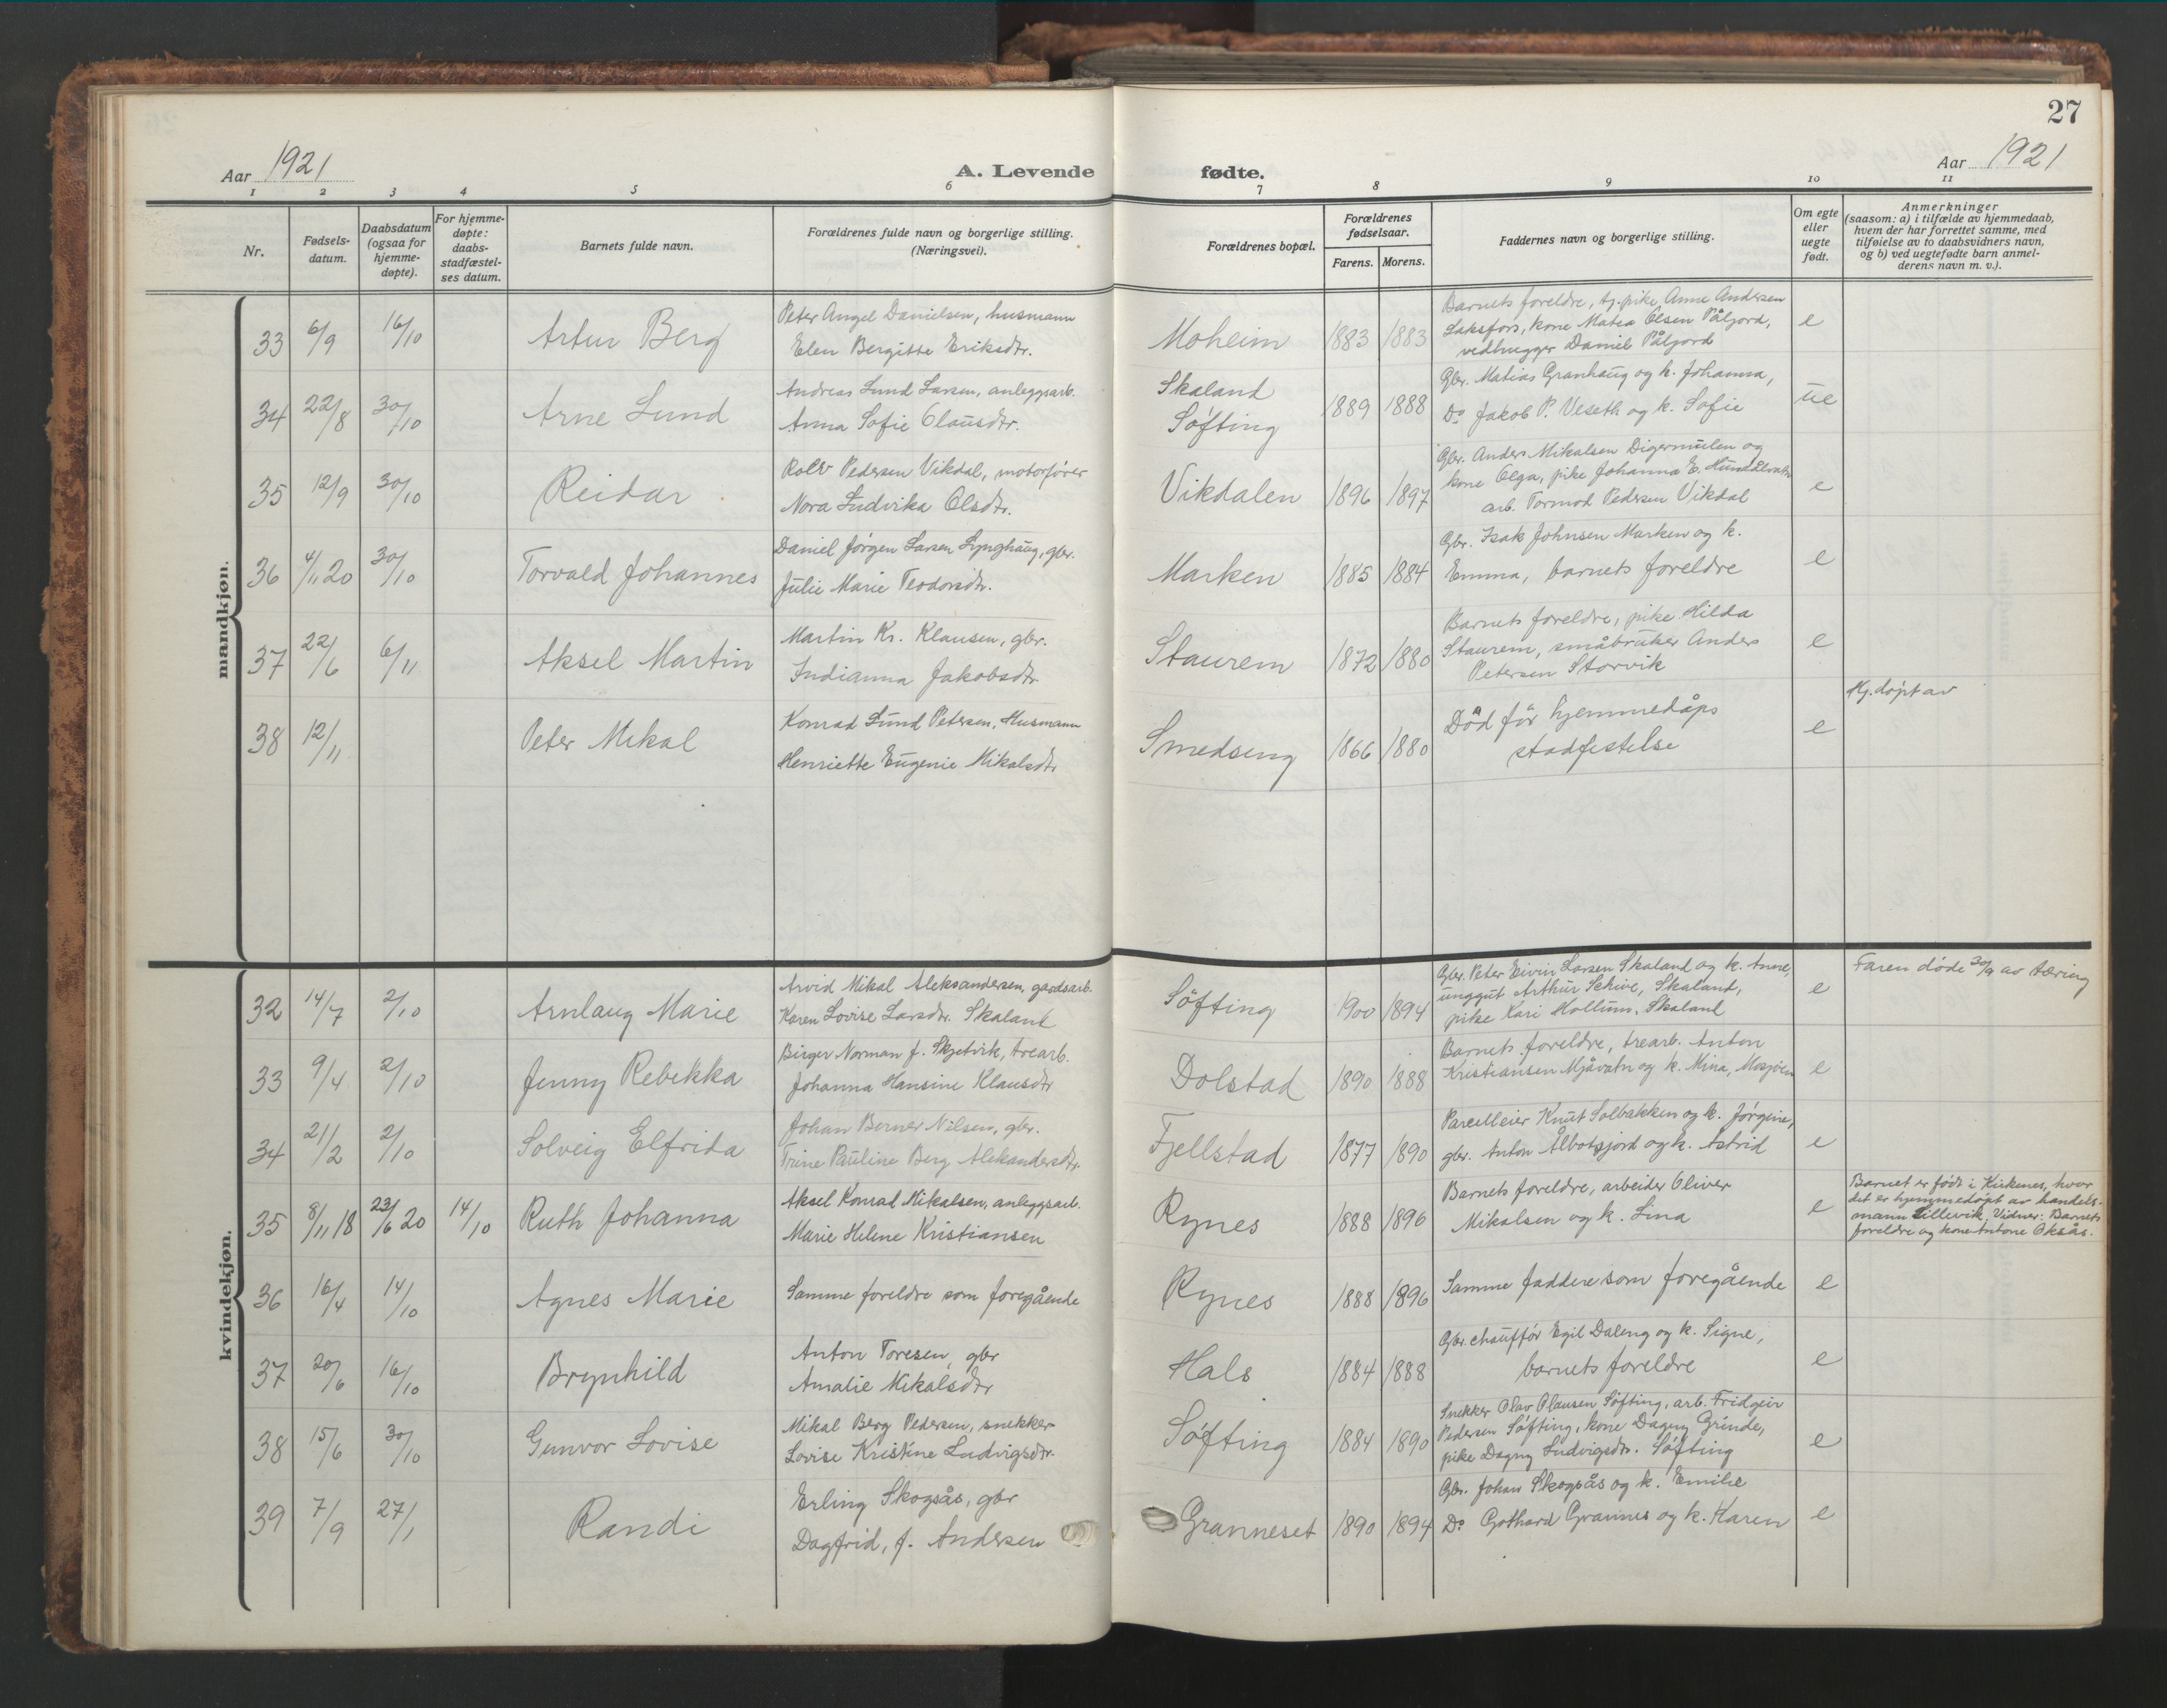 27
Aar 1921
A. Levende fødte.
Aar 1921
1 2 3 4 5 6 7 8 9 10 11
Nr.
Fødselsdatum.
Daabsdatum (ogsaa for hjemmedøpte).
For hjemmedøpte: daabsstadfæstelses datum.
Barnets fulde navn.
Forældrenes fulde navn og borgerlige stilling. (Næringsvei).
Forældrenes bopæl.
Forældrenes fødselsaar.
Farens. Morens.
Faddernes navn og borgerlige stilling.
Om egte eller uegte født.
Anmerkninger
(saasom: a) i tilfælde av hjemmedaab,
hvem der har forrettet samme, med
tilføielse av to daabsvidners navn,
og b) ved uegtefødte barn anmelderens navn m. v.).
mandkjøn.
33 6/9 16/10 Artur Berg
Peter Angel Danielsen, husmann
Elen Bergitte Eriksdtr.
Moheim 1883 1883
Barnets foreldre, tj.pike Anne Andersen
Laksfors, kone Matea Olsen Påljord,
vedhugger Daniel Påljord
e
34 22/8 30/10 Arne Lund
Andreas Lund Larsen, anleggsarb.
Anna Sofie Olausdtr.
Skaland
Søfting 1889 1888
Gbr. Matias Granhaug og k. Johanna,
Do Jakob P. Veseth og k. Sofie
ue
35 12/9 30/10 Reidar
Rolv Pedersen Vikdal, motorfører
Nora Ludvika Olsdtr.
Vikdalen 1896 1897
Gbr. Anders Mikalsen Digermulen og
kone Olga, pike Johanna E. Hundålvatn
arb. Tormod Pedersen Vikdal
e
36 4/11 20 30/10 Torvald Johannes
Daniel Jørgen Larsen Lynghaug, gbr.
Julie Marie Teodorsdtr.
Marken 1885 1884
Gbr. Isak Johnsen Marken og k.
Emma, barnets foreldre
e
37 22/6 6/11 Aksel Martin
Martin Kr. Klausen, gbr.
Indianna Jakobsdtr
Staurem 1872 1880
Barnets foreldre, pike Hilda
Staurem, småbruker Anders
Petersen Storvik
e
38 12/11 Peter Mikal
Konrad Lund Petersen, Husmann
Henriette Eugenie Mikalsdtr
Smedseng 1866 1880
Död för hjemmedåps
stadfestelse
e
Hj.døpt av
kvindekjøn.
32 14/7 2/10 Arnlaug Marie
Arvid Mikal Aleksandersen, gardsarb.
Karen Lovise Larsdtr. Skaland
Søfting 1900 1894
Gbr. Peter Eivin Larsen Skaland og k. Anne,
unggut Arthur Schive, Skaland,
pike Kari Hollum, Skaland
e
Faren døde 30/9 av tæring
33 9/4 2/10 Jenny Rebekka
Birger Norman J. Skjetvik, trearb.
Johanna Hansine Klausdtr
Dolstad 1890 1888
Barnets foreldre, trearb. Anton
Kristiansen Mjåvatn og k. Mina, Mosjøen
e
34 21/2 2/10 Solveig Elfrida
Johan Berner Nilsen, gbr.
Trine Pauline Berg Aleksandersdtr.
Fjellstad 1877 1890
Parcelleier Knut Solbakken og k. Jørgine,
gbr. Anton Ålbotsjord og k. Astrid
e
35 8/11 18 23/6 20 14/10 Ruth Johanna
Aksel Konrad Mikalsen, anleggsarb.
Marie Helene Kristiansen
Rynes 1888 1896
Barnets foreldre, arbeider Oliver
Mikalsen og k. Lina
e
Barnet er født i Kirkenes, hvor
det er hjemmedøpt av handelsmann
Lillevik. Vidner: Barnets
foreldre og kone Antone Oksås.
36 16/4 14/10 Agnes Marie
Samme foreldre som foregående
Rynes 1888 1896
Samme faddere som foregående
e
37 20/6 16/10 Brynhild
Anton Toresen, gbr
Amalie Mikalsdtr
Hals 1884 1888
Gbr. chauffør Egil Daleng og k. Signe,
barnets foreldre
e
38 15/6 30/10 Gunvor Lovise
Mikal Berg Pedersen, snekker
Lovise Kristine Ludvigsdtr.
Søfting 1884 1890
Snekker Olav Olausen Søfting, arb. Fridgeir
Pedersen Søfting, kone Dagny Grinde,
pike Dagny Ludvigsdtr. Søfting
e
39 7/9 27/1 Randi
Erling Skogsås, gbr
Dagfrid, f. Andersen
Granneset 1890 1894
Gbr. Johan Skogsås og k. Emilie
Do Gothard Grannes og k. Karen
e